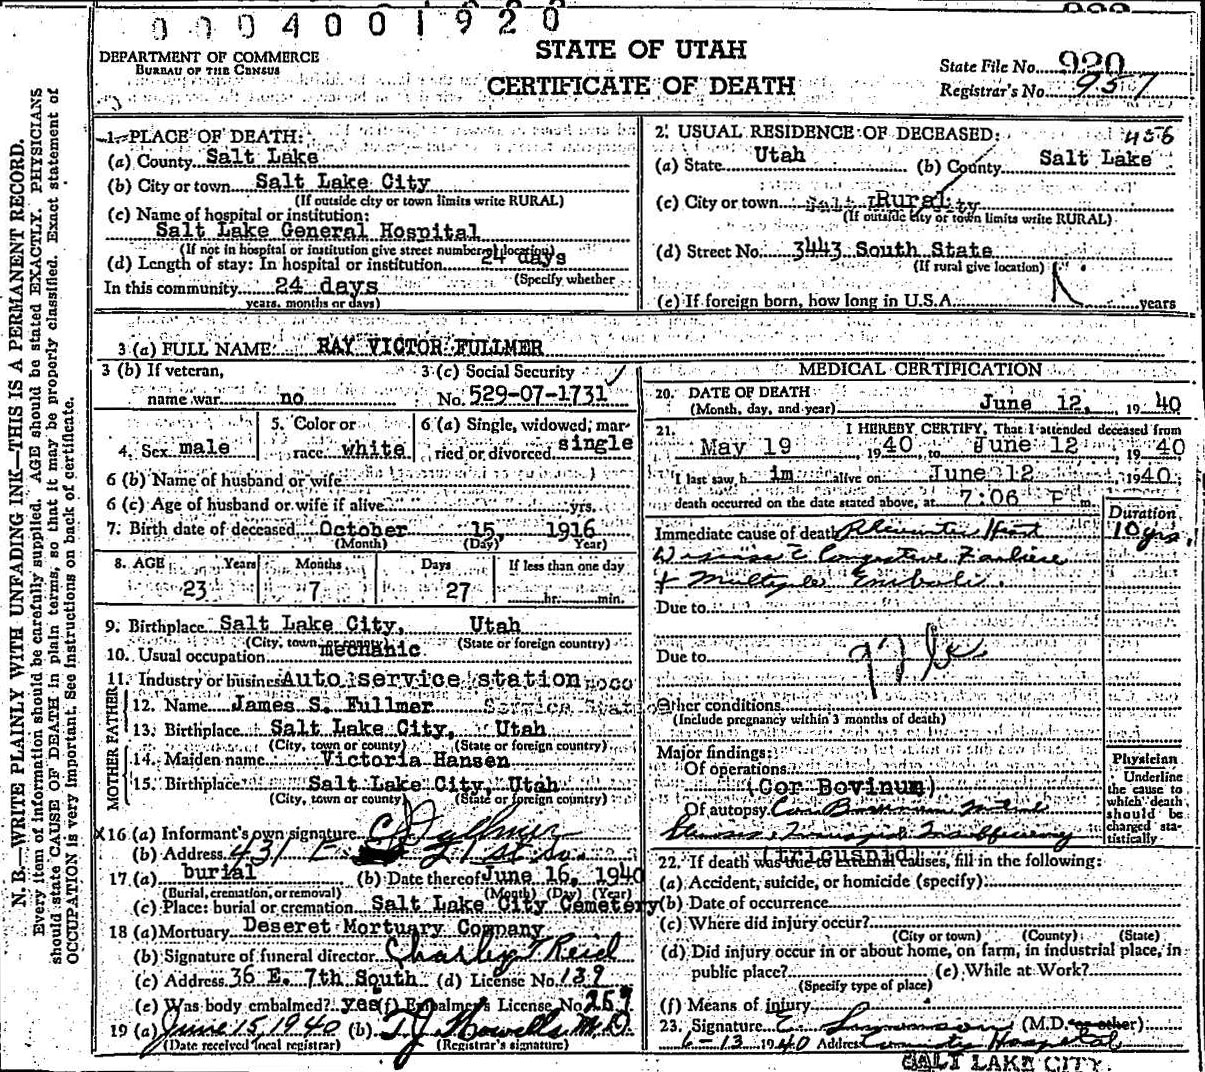 0004001920
STATE OF UTAH
CERTIFICATE OF DEATH
DEPARTMENT OF COMMERCE
BUREAU OF THE CENSUS
State File No. 920
Registrar's No. 957
N. B.—WRITE PLAINLY WITH UNFADING INK—THIS IS A PERMANENT RECORD.
Every item of information should be carefully supplied. AGE should be stated EXACTLY. PHYSICIANS
should state CAUSE OF DEATH in plain terms, so that it may be properly classified. Exact statement of
OCCUPATION is very important. See instructions on back of certificate.
1. PLACE OF DEATH:
(a) County Salt Lake
(b) City or town Salt Lake City
(If outside city or town limits write RURAL)
(c) Name of hospital or institution:
Salt Lake General Hospital
(If not in hospital or institution give street number or location)
(d) Length of stay: In hospital or institution 24 days
(Specify whether
In this community 24 days
years, months or days)
2. USUAL RESIDENCE OF DECEASED: 456
(a) State Utah (b) County Salt Lake
(c) City or town Rural
(If outside city or town limits write RURAL)
(d) Street No. 3443 South State
(If rural give location)
(e) If foreign born, how long in U.S.A. years
3 (a) FULL NAME RAY VICTOR FULLMER
3 (b) If veteran,
name war no
3 (c) Social Security
No. 529-07-1731
4. Sex male
5. Color or
race white
6 (a) Single, widowed, mar-
ried or divorced single
6 (b) Name of husband or wife
6 (c) Age of husband or wife if alive yrs.
7. Birth date of deceased October 15, 1916
(Month) (Day) Year)
8. AGE Years Months Days If less than one day
23 7 27 hr. min.
9. Birthplace Salt Lake City, Utah
(City, town or county) (State or foreign country)
10. Usual occupation mechanic
11. Industry or business Auto service station
FATHER
12. Name James S. Fullmer
13. Birthplace Salt Lake City, Utah
(City, town or county) (State or foreign country)
MOTHER
14. Maiden name Victoria Hansen
15. Birthplace Salt Lake City, Utah
(City, town or county) (State or foreign country)
X16 (a) Informant's own signature Fullmer
(b) Address 431 E 21st So.
17. (a) burial (b) Date thereof June 16, 1940
(Burial, cremation, or removal) (Month) (Day) (Year)
(c) Place: burial or cremation Salt Lake City Cemetery
18 (a) Mortuary Deseret Mortuary Company
(b) Signature of funeral director Charley T Reid
(c) Address 36 E. 7th South (d) License No. 139
(e) Was body embalmed? yes (f) Embalmer's License No. 257
19 (a) June 15, 1940 (b) T.J. Howells M.D
(Date received local registrar) (Registrar's signature)
MEDICAL CERTIFICATION
20. DATE OF DEATH
(Month, day, and year) June 12, 1940
21. I HEREBY CERTIFY, That I attended deceased from
May 19 1940 to June 12 1940
I last saw him alive on June 12 1940
death occurred on the date stated above, at 7:06 P m.
Duration
Immediate cause of death Rheumatic Heart 10 yrs.
Disease c Congestive Failure
+ Multiple Emboli.
Due to
Due to
Other conditions
(Include pregnancy within 3 months of death)
Major findings:
Of operations
(Cor Bovinum)
Of autopsy Cor Bovinum Mitral
Stenosis Tricuspid Insufficiency
(Tricuspid)
Physician
Underline
the cause to
which death
should be
charged sta-
tistically
22. If death was due to external causes, fill in the following:
(a) Accident, suicide, or homicide (specify):
(b) Date of occurrence
(c) Where did injury occur?
(City or town) (County) (State)
(d) Did injury occur in or about home, on farm, in industrial place, in
public place? (e) While at Work?
(Specify type of place)
(f) Means of injury
23. Signature E. (M.D. or other)
6-13 1940 Address County Hospital
SALT LAKE CITY.